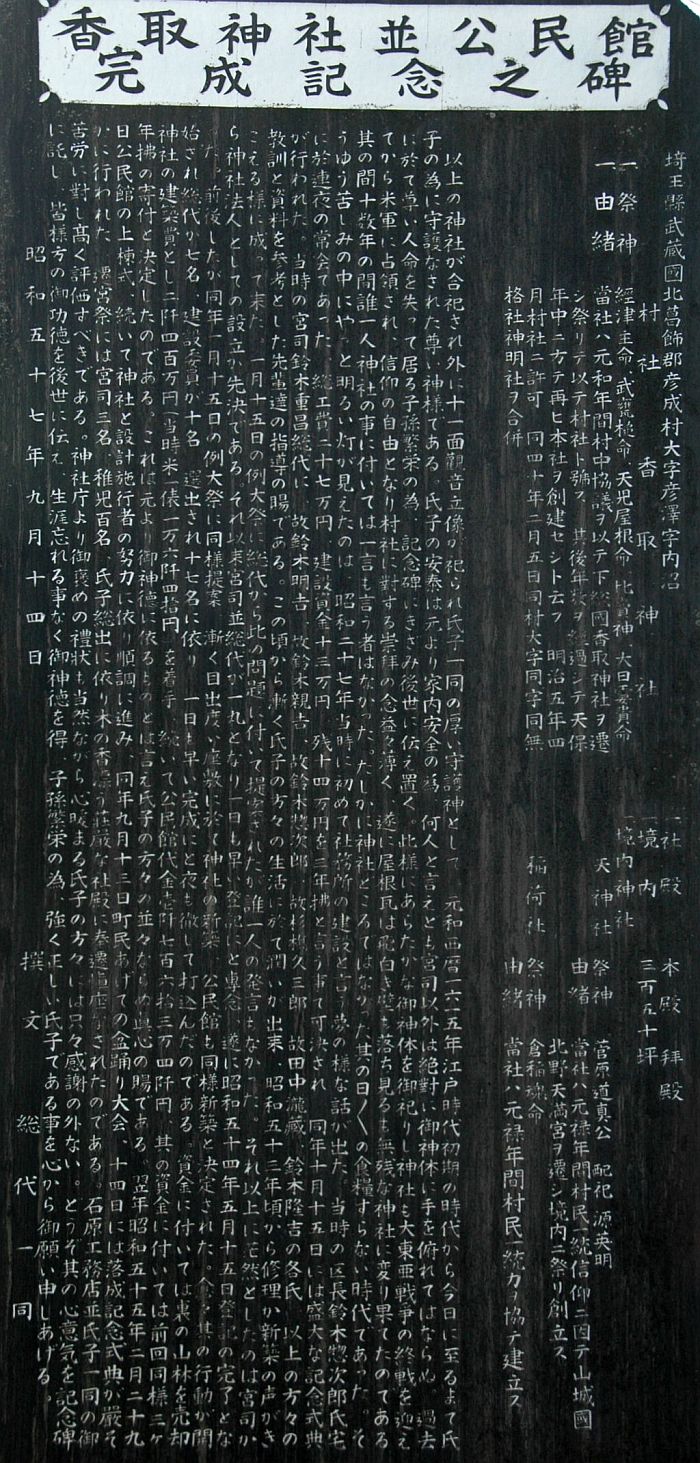 香取神社並公民館
完成記念之碑
埼玉縣武蔵國北葛飾郡彦成村大字彦澤字内沼
村社 香取神社
一 祭神 經津主命 武甕槌命 天児屋根命 比賣神 大日孁貴命
一 由緒 當社ハ元和年間村中協議ヲ以テ下総國香取神社ヲ遷
シ祭リテ以テ村社ト号ス 其後年数ヲ経過シテ天保
年中ニ方テ再ヒ本社ヲ創建セシト云フ 明治五年四
月村社ニ許可 同四十年二月五日同村大字同字同無
格社神明社ヲ合併
一社殿 本殿 拝殿
一境内 三百五十坪
一境内神社
天神社 祭神 菅原道真公 配祀 源英明
由緒 當社ハ元禄年間村民一統信仰ニ因テ山城國
北野天満宮ヲ遷シ境内ニ祭リ創立ス
稲荷社 祭神 倉稲魂命
由緒 當社ハ元禄年間村民一統力ヲ協テ建立ス
以上の神社が合祀され外に十一面觀音立像が祀られ氏子一同の厚い守護神として 元和西暦一六一五年江戸時代初期の時代から今日に至るまで氏
子の為に守護なされた尊い神様である。氏子の安泰は元より家内安全の為 何人と言えども宮司以外は絶對に御神体に手を俯れてはならぬ。過去
に於て尊い人命を失って居る子孫繁栄の為、記念碑にきざみ後世に伝え置く。此様にあらたかな御神体を御祀りし神社も大東亜戦争の終戦を迎え
てから米軍に占領され、信仰の自由となり村社に對する崇拝の念益々薄く、遂に屋根瓦は飛白き壁も落ち見るも無残な神社に変り果てたのである
其の間十数年の間誰一人神社の事に付いては一言も言う者はなかった。たしかに神社どころではなかった其の日〱の食糧すらない時代であった。そ
うゆう苦しみの中にやっと明るい灯が見えたのは 昭和二十七年当時に初めて社務所の建設と言う夢の様な話が出た。当時の区長鈴木惣次郎氏宅
に於連夜の常会であった 総工費二十七万円 建設資金十三万円 残十四万円を三年拂と言う事で可決され 同年十月十五日には盛大な記念式典
が行われた。当時の宮司鈴木重昌総代に、故鈴木明吉 故鈴木親吉、故鈴木惣次郎 故杉橋久三郎 故田中瀧蔵 鈴木隆吉の各氏 以上の方々の
教訓と資料を参考とした先輩達の指導の賜である。この頃から漸く氏子の方々の生活に於て潤いが出来、昭和五十三年頃から修理か新築の声がき
こえる様に成って末た。一月十五日の例大祭に総代から此の問題に付いて提案されたが誰一人の発言もなかった、それ以上に茫然としたのは宮司か
ら神社法人としての設立が先決である。それ以来宮司並総代が一丸となり一日も早く登記にと専念 遂に昭和五十四年五月十五日登記の完了とな
った。前後したが同年一月十五日の例大祭に同様提案 漸く目出度い座敷に於て神社の新築 公民館も同様新築と決定された。念々其の行動が開
始され総代が七名、建設委員が十名 選出され十七名に依り 一日も早い完成にと夜も徹して打込んだのである。資金に付いては裏の山林を売却
神社の建築費として二阡四百万円(当時米一俵一万六阡四拾円)を着手、続いて公民館代金壱阡七百六拾三万四阡円、其の資金に付いては前回同様三ヶ
年拂の寄付と決定したのである。これは元より御神徳に依るものとは言え氏子の方々の並々ならぬ真心の賜である。翌年昭和五十五年二月二十九
日公民館の上棟式、続いて神社と設計施行者の努力に依り順調に進み、同年九月十三日町民あげての盆踊り大会、十四日には落成記念式典が厳そ
かに行われた 遷宮祭には宮司三名、稚児百名、氏子総出に依り木の香漂う荘厳な社殿に奉遷申座なされたのである。石原工務店並氏子一同の御
苦労に対し高く評価すべきである。神社庁より御褒めの禮状も当然ながら心暖まる氏子の方々には只々感謝の外ない。どうぞ其の心意気を記念碑
に託し、皆様方の御功徳を後世に伝え 生涯忘れる事なく御神徳を得、子孫繁栄の為、強く正しい氏子である事を心から御願い申しあげる。
昭和五十七年九月十四日 撰文 総代一同